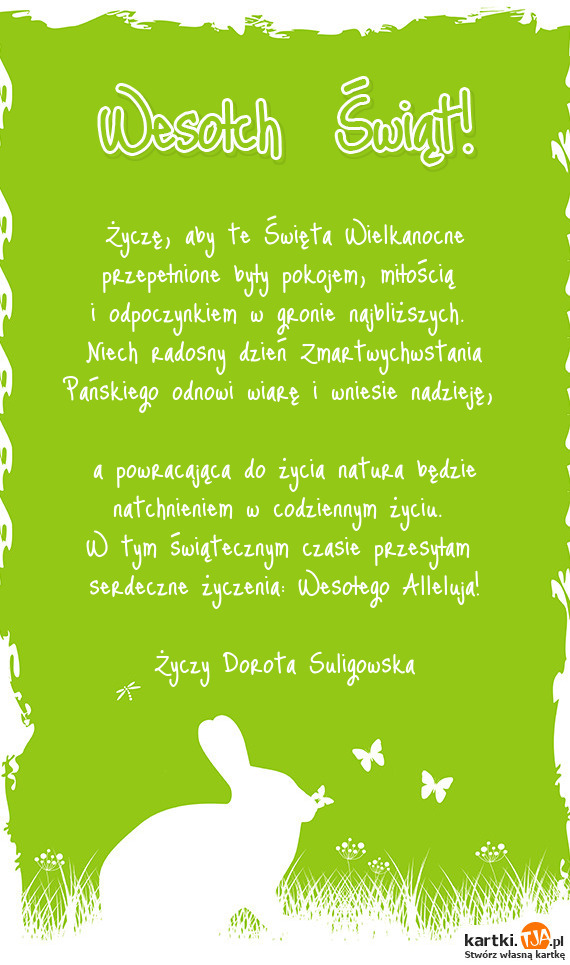 Wesołch Świąt!
Życzę, aby te Święta Wielkanocne
przepełnione były pokojem, miłością
i odpoczynkiem w gronie najbliższych.
Niech radosny dzień Zmartwychwstania
Pańskiego odnowi wiarę i wniesie nadzieję,
a powracająca do życia natura będzie
natchnieniem w codziennym życiu.
W tym świątecznym czasie przesyłam
serdeczne życzenia: Wesołego Alleluja!
Życzy Dorota Suligowska
kartki.TJA.pl
Stwórz własną kartkę